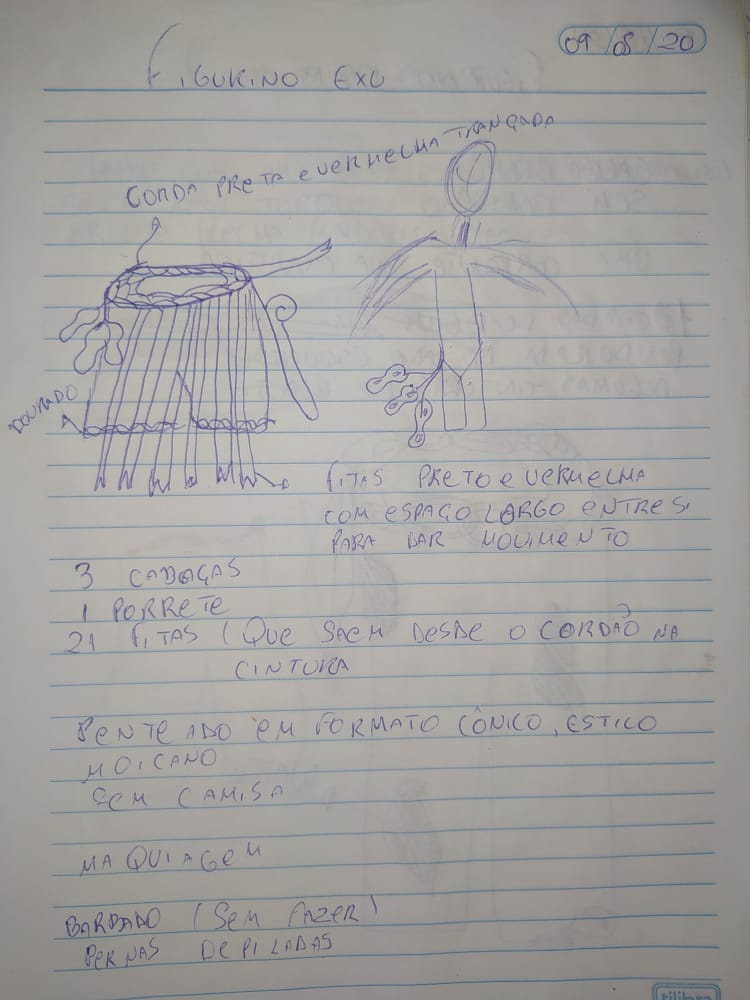 09/08/20
FIGURINO EXU
CORDA PRETA e VERMELHA TRANÇADA
DOURADO
FITAS PRETO e VERMELHA
COM ESPAÇO LARGO ENTRE SI
PARA DAR MOVIMENTO
3 CABAÇAS
1 PORRETE
21 FITAS (QUE SAEM DESDE O CORDÃO NA
CINTURA
PENTEADO EM FORMATO CÔNICO, ESTILO
MOICANO
SEM CAMISA
MAQUIAGEM
BARBADO (SEM FAZER)
PERNAS DEPILADAS
tilibra